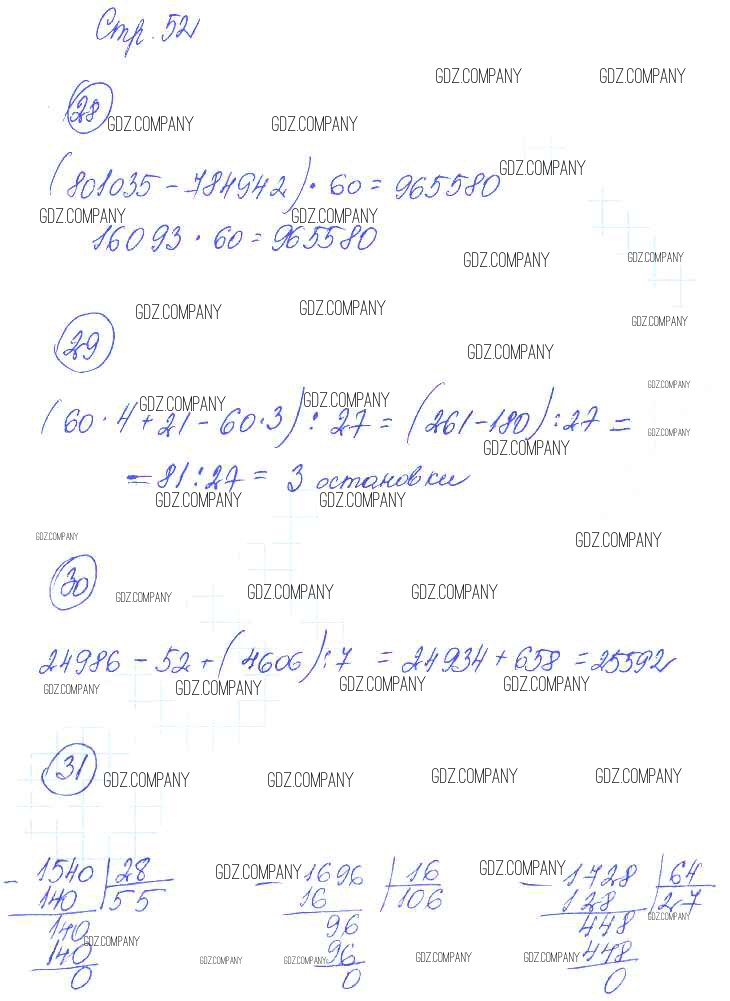 Стр. 52
GDZ.COMPANY GDZ.COMPANY
28
GDZ.COMPANY GDZ.COMPANY
(801035 - 784942) · 60 = 965580
GDZ.COMPANY
GDZ.COMPANY GDZ.COMPANY
16093 · 60 = 965580
GDZ.COMPANY GDZ.COMPANY
GDZ.COMPANY GDZ.COMPANY
GDZ.COMPANY
29
GDZ.COMPANY
GDZ.COMPANY
GDZ.COMPANY GDZ.COMPANY
(60 · 4 + 21 - 60 · 3) : 27 = (261 - 180) : 27 =
GDZ.COMPANY
GDZ.COMPANY
= 81 : 27 = 3 остановки
GDZ.COMPANY GDZ.COMPANY
GDZ.COMPANY GDZ.COMPANY
30
GDZ.COMPANY GDZ.COMPANY GDZ.COMPANY
24986 - 52 + (4606) : 7 = 24934 + 658 = 25592
GDZ.COMPANY GDZ.COMPANY GDZ.COMPANY GDZ.COMPANY
31
GDZ.COMPANY GDZ.COMPANY GDZ.COMPANY GDZ.COMPANY
GDZ.COMPANY GDZ.COMPANY
- 1540 | 28
140 | 55
140
140
0
GDZ.COMPANY
- 1696 | 16
16 | 106
96
96
0
GDZ.COMPANY GDZ.COMPANY GDZ.COMPANY
- 1728 | 64
128 | 27
448
448
0
GDZ.COMPANY
GDZ.COMPANY